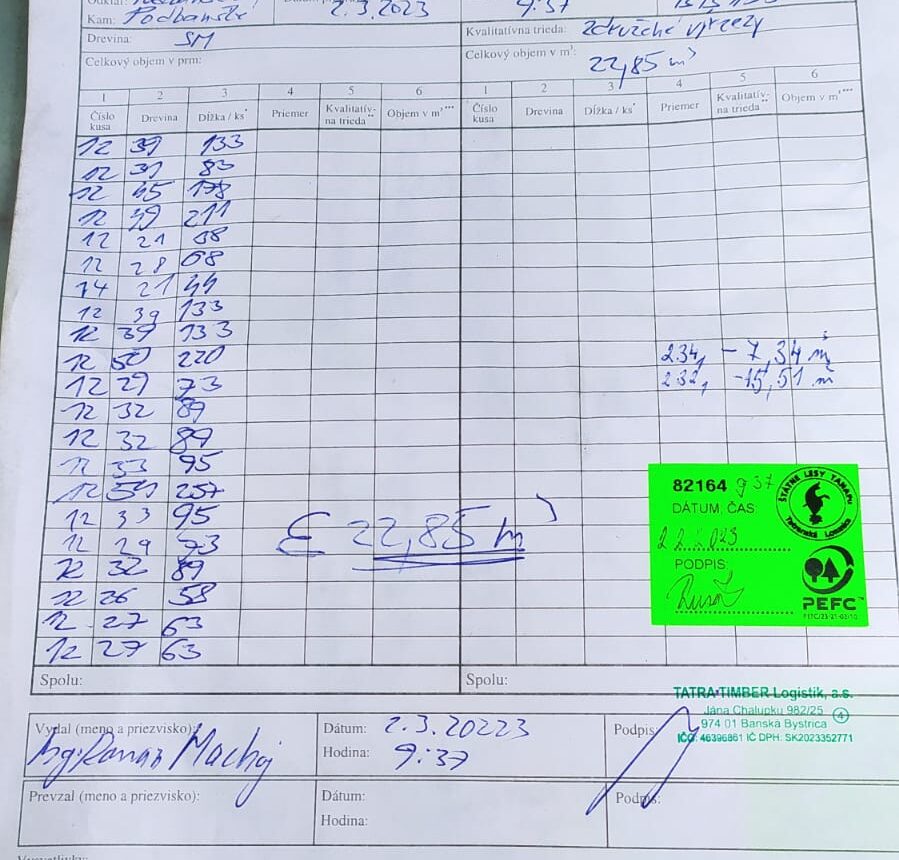 Kam: Podbanské 2.3.2023 9:37
Drevina: SM Kvalitatívna trieda: združené výrezy
Celkový objem v prm: Celkový objem v m³: 22,85 m³
1 2 3 4 5 6 1 2 3 4 5 6
Číslo kusa Drevina Dĺžka / ks* Priemer Kvalitatív-na trieda** Objem v m³*** Číslo kusa Drevina Dĺžka / ks* Priemer Kvalitatív-na trieda** Objem v m³***
12 39 133
12 31 83
12 45 178
12 49 211
12 21 38
12 28 68
14 21 44
12 39 133
12 39 133
12 50 220 234, - 7,34 m³
12 29 73 232, -15,51 m³
12 32 89
12 32 89
12 33 95
12 54 257
12 33 95
12 29 73
12 32 89
12 26 58
12 27 63
12 27 63
Σ 22,85 m³
82164 9 37
DÁTUM, ČAS
2.2.2023
PODPIS
ŠTÁTNE LESY TANAPU
Tatranská Lomnica
PEFC™
Spolu: Spolu:
TATRA TIMBER Logistik, a.s.
Jána Chalupku 982/25
974 01 Banská Bystrica
4
IČO: 46396861 IČ DPH: SK2023352771
Vydal (meno a priezvisko): Dátum: 2.3.20223 Podpis:
Ing. Roman Machaj Hodina: 9:37
Prevzal (meno a priezvisko): Dátum: Podpis:
Hodina:
Vysvetlivky: